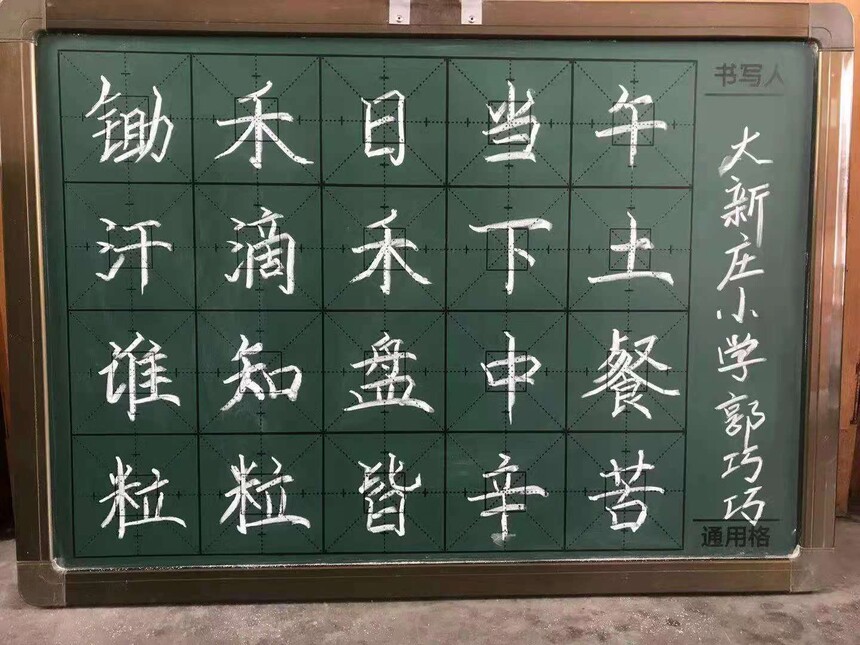 锄禾日当午
汗滴禾下土
谁知盘中餐
粒粒皆辛苦
书写人
大新庄小学郭巧巧
通用格